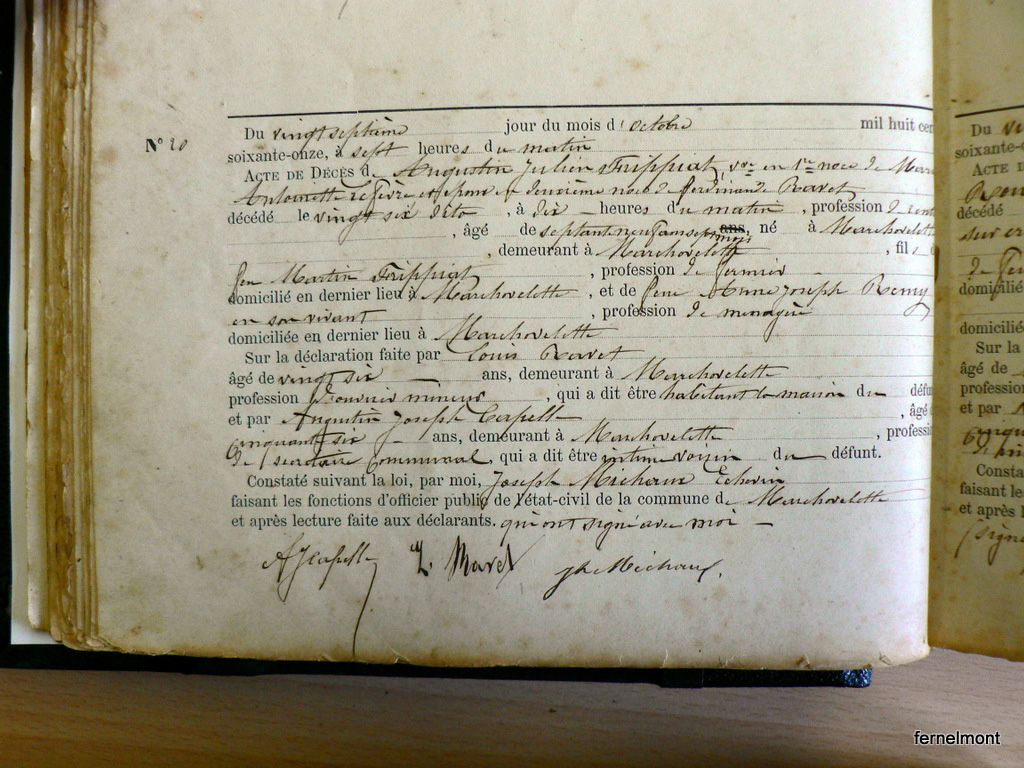 N° 20
Du vingt septième jour du mois d'octobre mil huit cen
soixante-onze, à sept heures du matin
ACTE DE DÉCÈS de Augustin Julien Frippiat, en 1re noce de
Antoinette Lefèvre et époux en deuxième noce de Ferdinande Ravet
décédé le vingt six dito, à dix heures du matin, profession de
, âgé de septante neuf ans sept mois ans, né à Marchovelette
, demeurant à Marchovelette, fils
feu Martin Frippiat, profession de fermier
domicilié en dernier lieu à Marchovelette, et de feue Anne Joseph Remy
en son vivant, profession de menagère
domiciliée en dernier lieu à Marchovelette
Sur la déclaration faite par Louis Ravet
âgé de vingt six ans, demeurant à Marchovelette
profession d'ouvrier mineur, qui a dit être habitant la maison du défun
et par Augustin Joseph Capelle, âgé
cinquante six ans, demeurant à Marchovelette, professi
de secrétaire communal, qui a dit être voisin du défunt.
Constaté suivant la loi, par moi, Joseph Michaux Echevin
faisant les fonctions d'officier public de l'état-civil de la commune de Marchovelette
et après lecture faite aux déclarants. qui ont signé avec moi
AJCapelle L. Ravet Jh Michaux.
Du
soixante-
ACTE D
décédé
domicilié
domicilié
Sur la
âgé de
profession
et par
Consta
faisant les
et après l
fernelmont